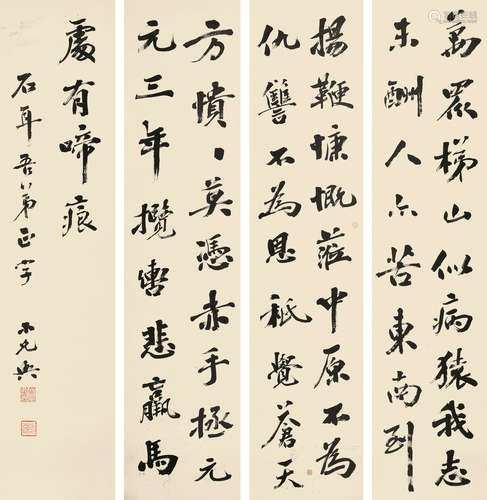 萬眾梯山似病猿我志
未酬人亦苦東南到
揚鞭慷慨莅中原不為
仇讐不為恩祇覺蒼天
方憒々莫憑赤手拯元
元三年攬轡悲羸馬
處有啼痕
石年吾弟正字